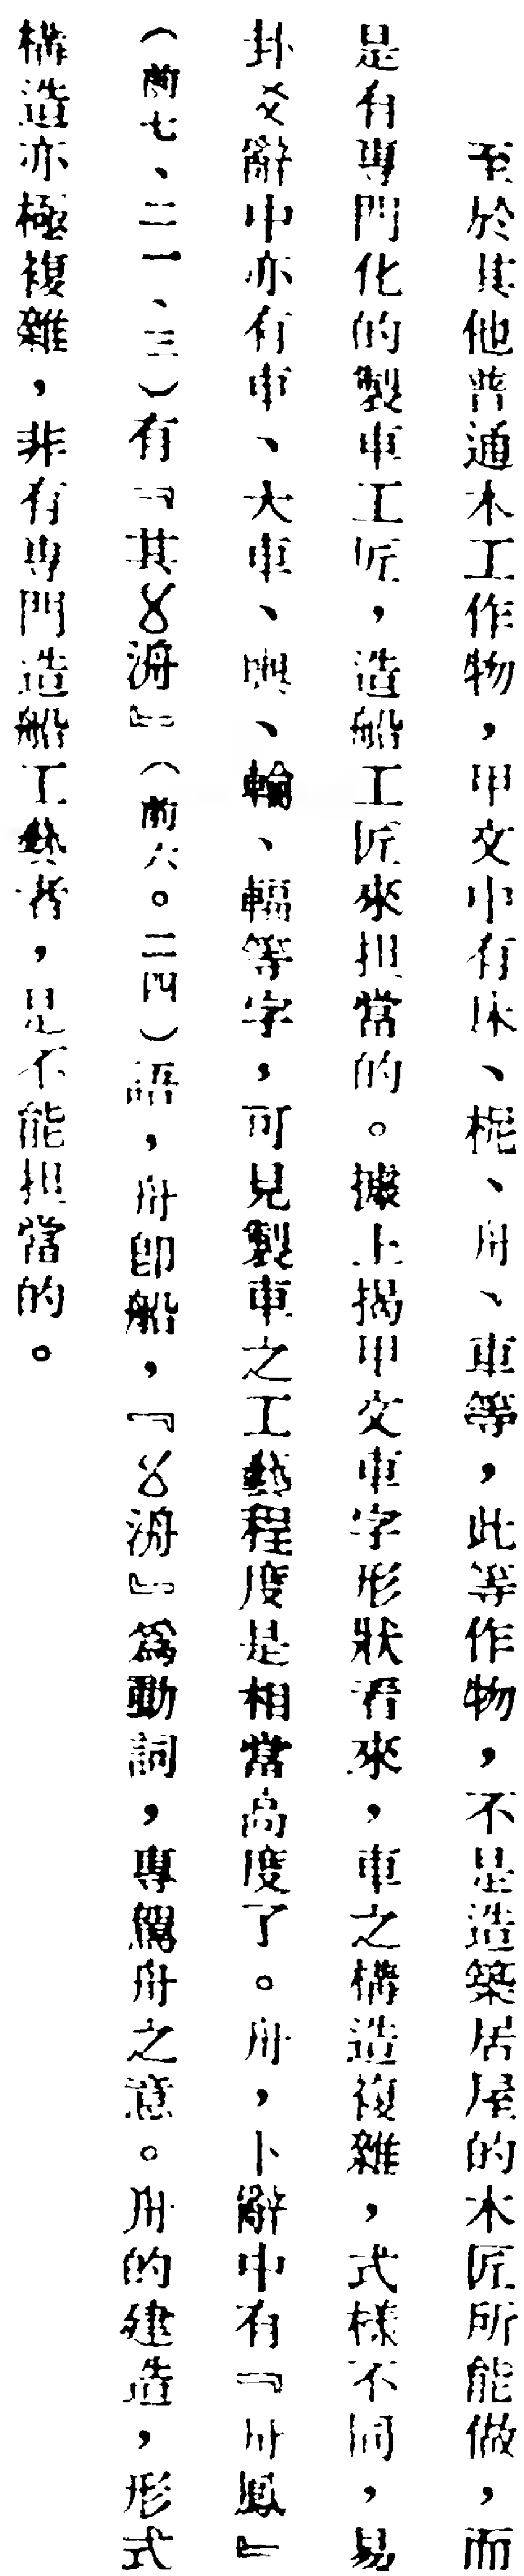 至於其他普通木工作物，甲文中有床、柅、舟、車等，此等作物，不是造築居屋的木匠所能做，而
是有專門化的製車工匠，造船工匠來担當的。據上揭甲文車字形狀看來，車之構造複雜，式樣不同，易
卦爻辭中亦有車、大車、輿、輪、輻等字，可見製車之工藝程度是相當高度了。舟，卜辭中有『舟鳳』
（前七、二一、三）有『其㳛』（前六。二四）語，舟卽船，『㳛』爲動詞，專駕舟之意。舟的建造，形式
構造亦極複雜，非有專門造船工藝者，是不能担當的。